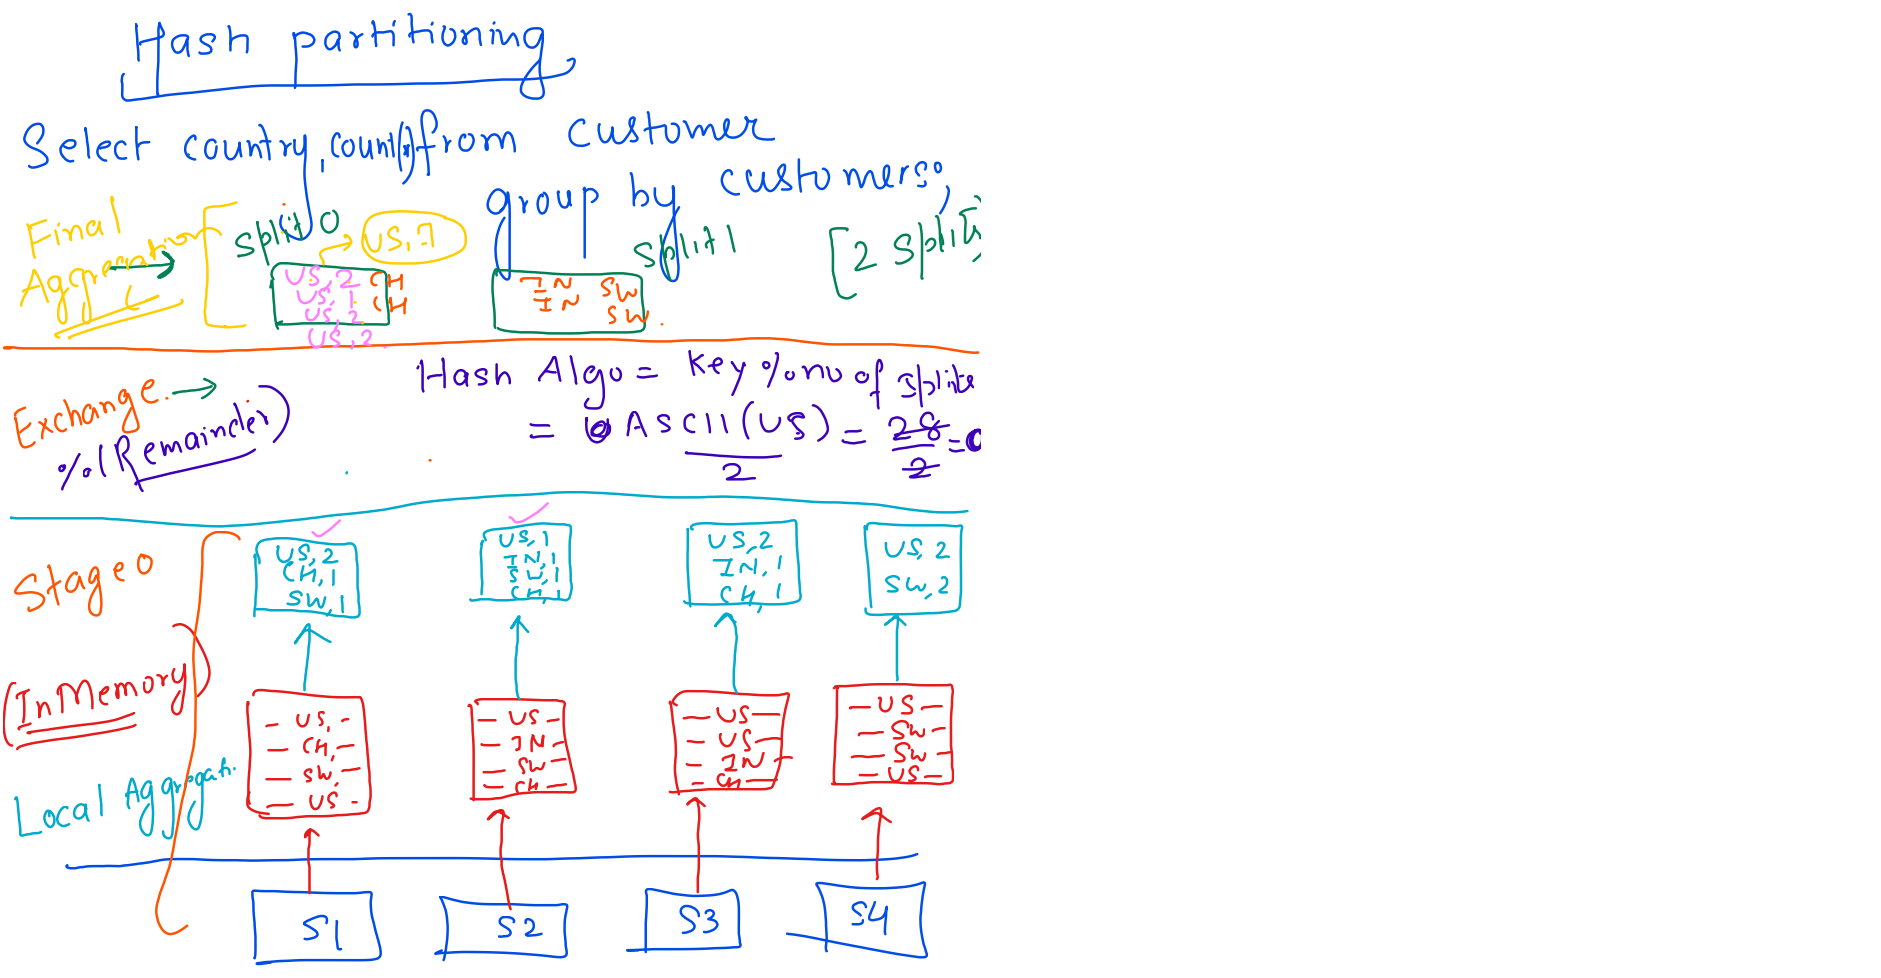 Hash partitioning
Select country, count(*) from customer
group by customers;
Final
Aggregation
split 0
US, 7
split 1
[2 splits
US, 2 CH
US, 1 CH
US, 2
US, 2
IN SW
IN SW
Exchange.
%(Remainder)
Hash Algo = Key % no of splits
= ASCII(US) / 2 = 28 / 2 = 0
Stage 0
US, 2
CH, 1
SW, 1
US, 1
IN, 1
SW, 1
CH, 1
US, 2
IN, 1
CH, 1
US, 2
SW, 2
(In Memory)
Local Aggregati.
- US, -
- CH, -
- SW, -
- US -
- US -
- IN -
- SW -
- CH -
- US -
- US -
- IN -
- CH -
- US -
- SW -
- SW -
- US -
S1
S2
S3
S4